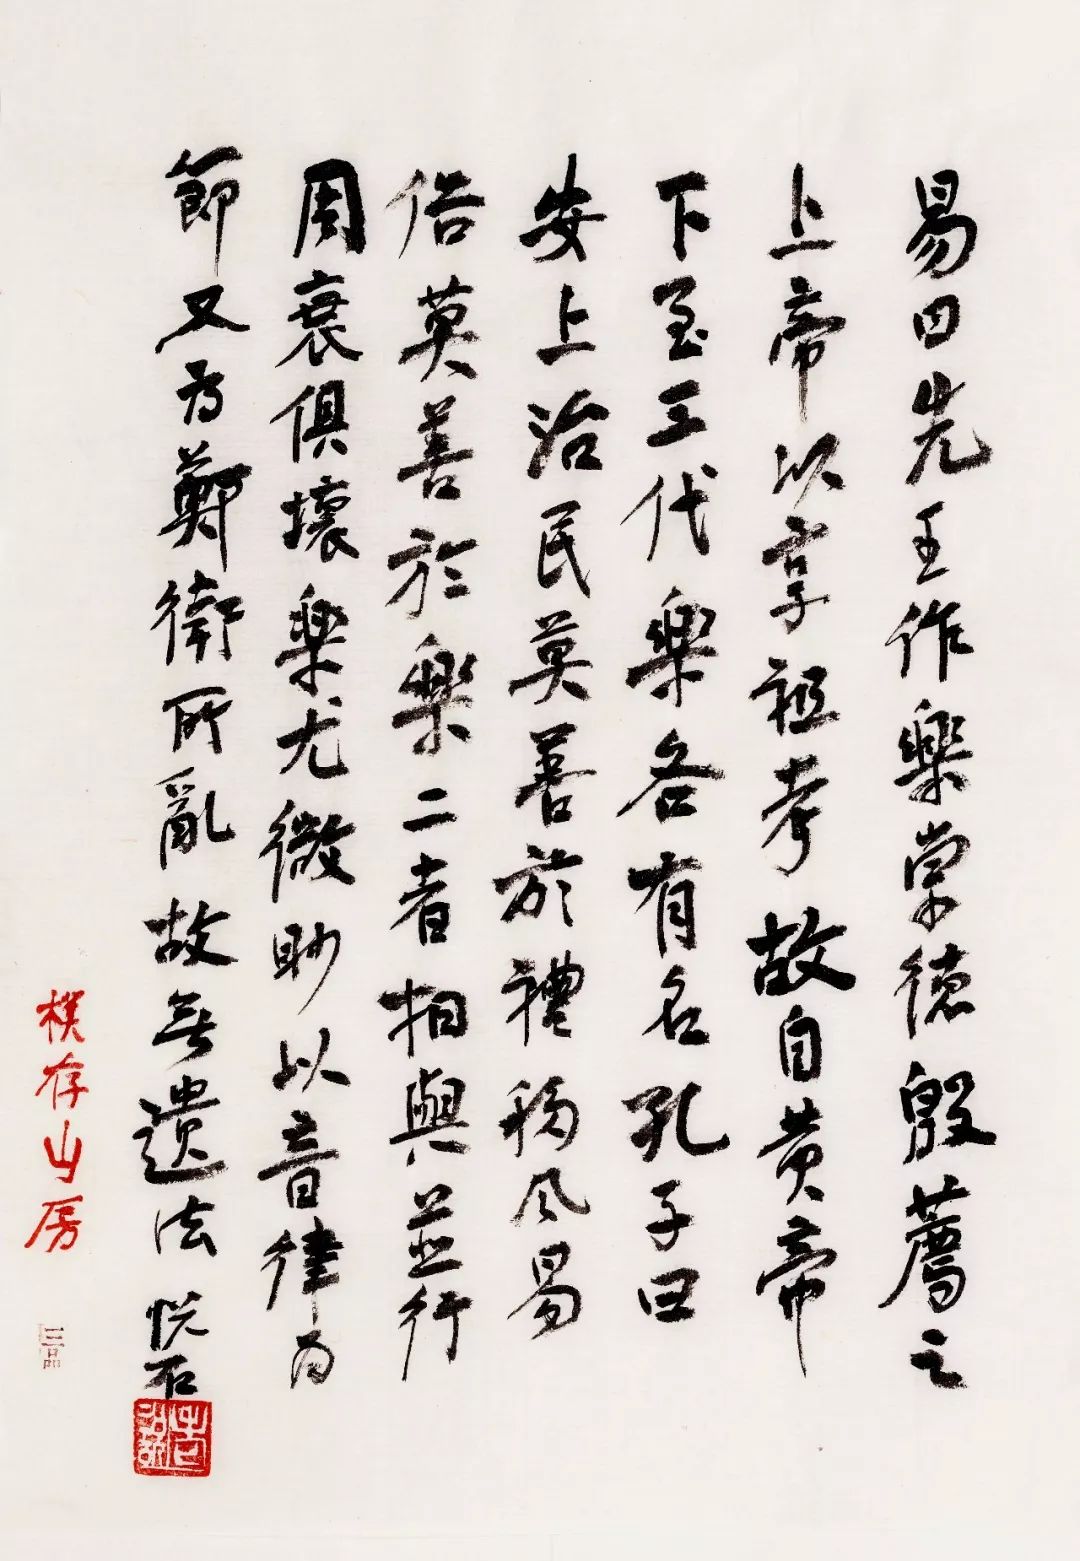 易曰先王作樂崇德殷薦之
上帝以享祖考故自黄帝
下至三代樂各有名孔子曰
安上治民莫善於禮移風易
俗莫善於樂二者相與並行
周衰俱壞樂尤微眇以音律為
節又為鄭衛所亂故無遺法
悦石
樸存山房